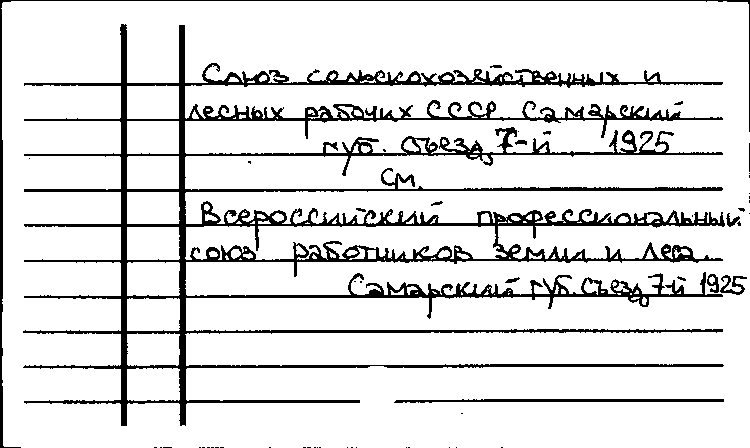 Союз сельскохозяйственных и
лесных рабочих СССР. Самарский
губ. съезд, 7-й. 1925
см.
Всероссийский профессиональный
союз работников земли и леса.
Самарский губ. съезд, 7-й 1925